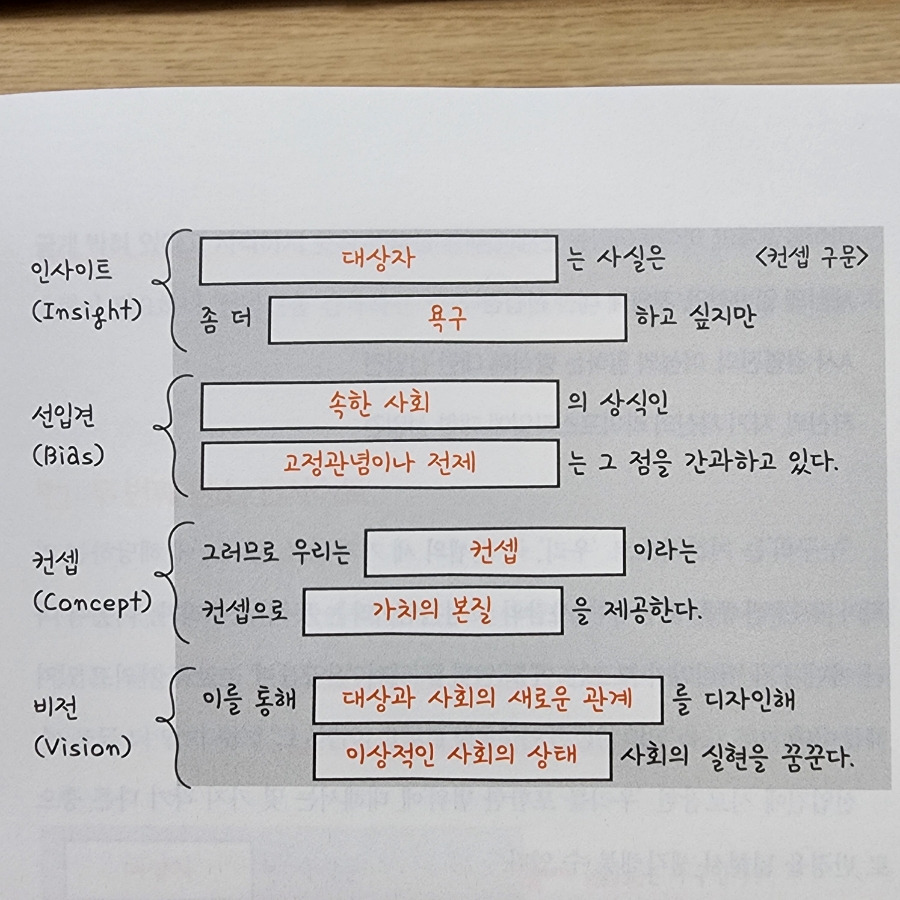 인사이트
(Insight)
대상자 는 사실은 <컨셉 구문>
좀 더 욕구 하고 싶지만
선입견
(Bias)
속한 사회 의 상식인
고정관념이나 전제 는 그 점을 간과하고 있다.
컨셉
(Concept)
그러므로 우리는 컨셉 이라는
컨셉으로 가치의 본질 을 제공한다.
비전
(Vision)
이를 통해 대상과 사회의 새로운 관계 를 디자인해
이상적인 사회의 상태 사회의 실현을 꿈꾼다.